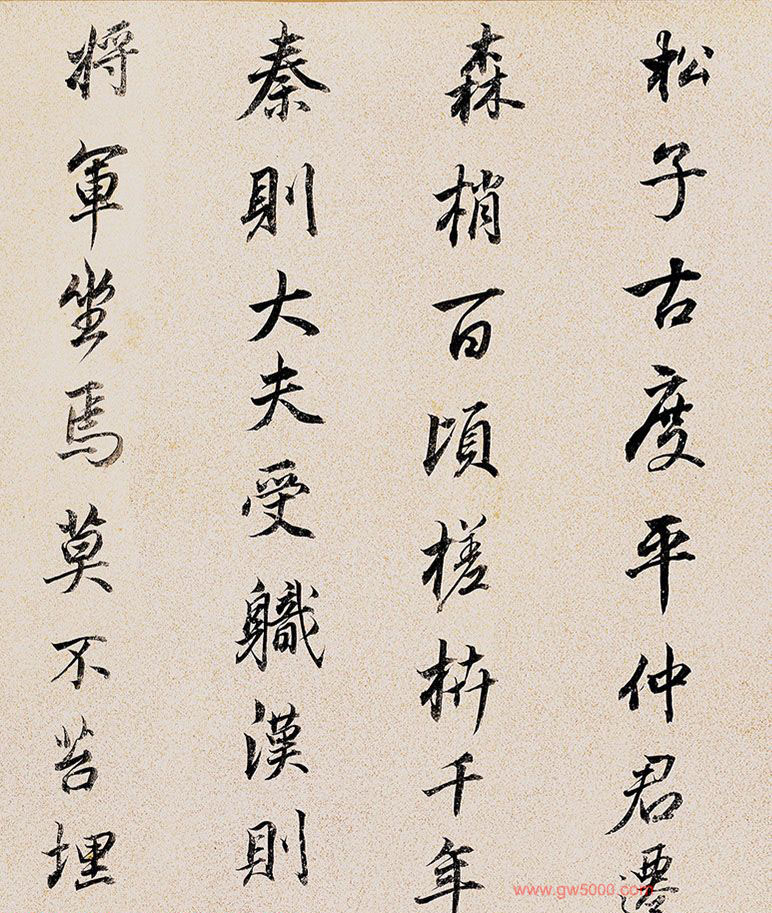 松子古度平仲君遷
森梢百頃槎枿千年
秦則大夫受軄漢則
將軍坐焉莫不苔埋
www.gw5000.com